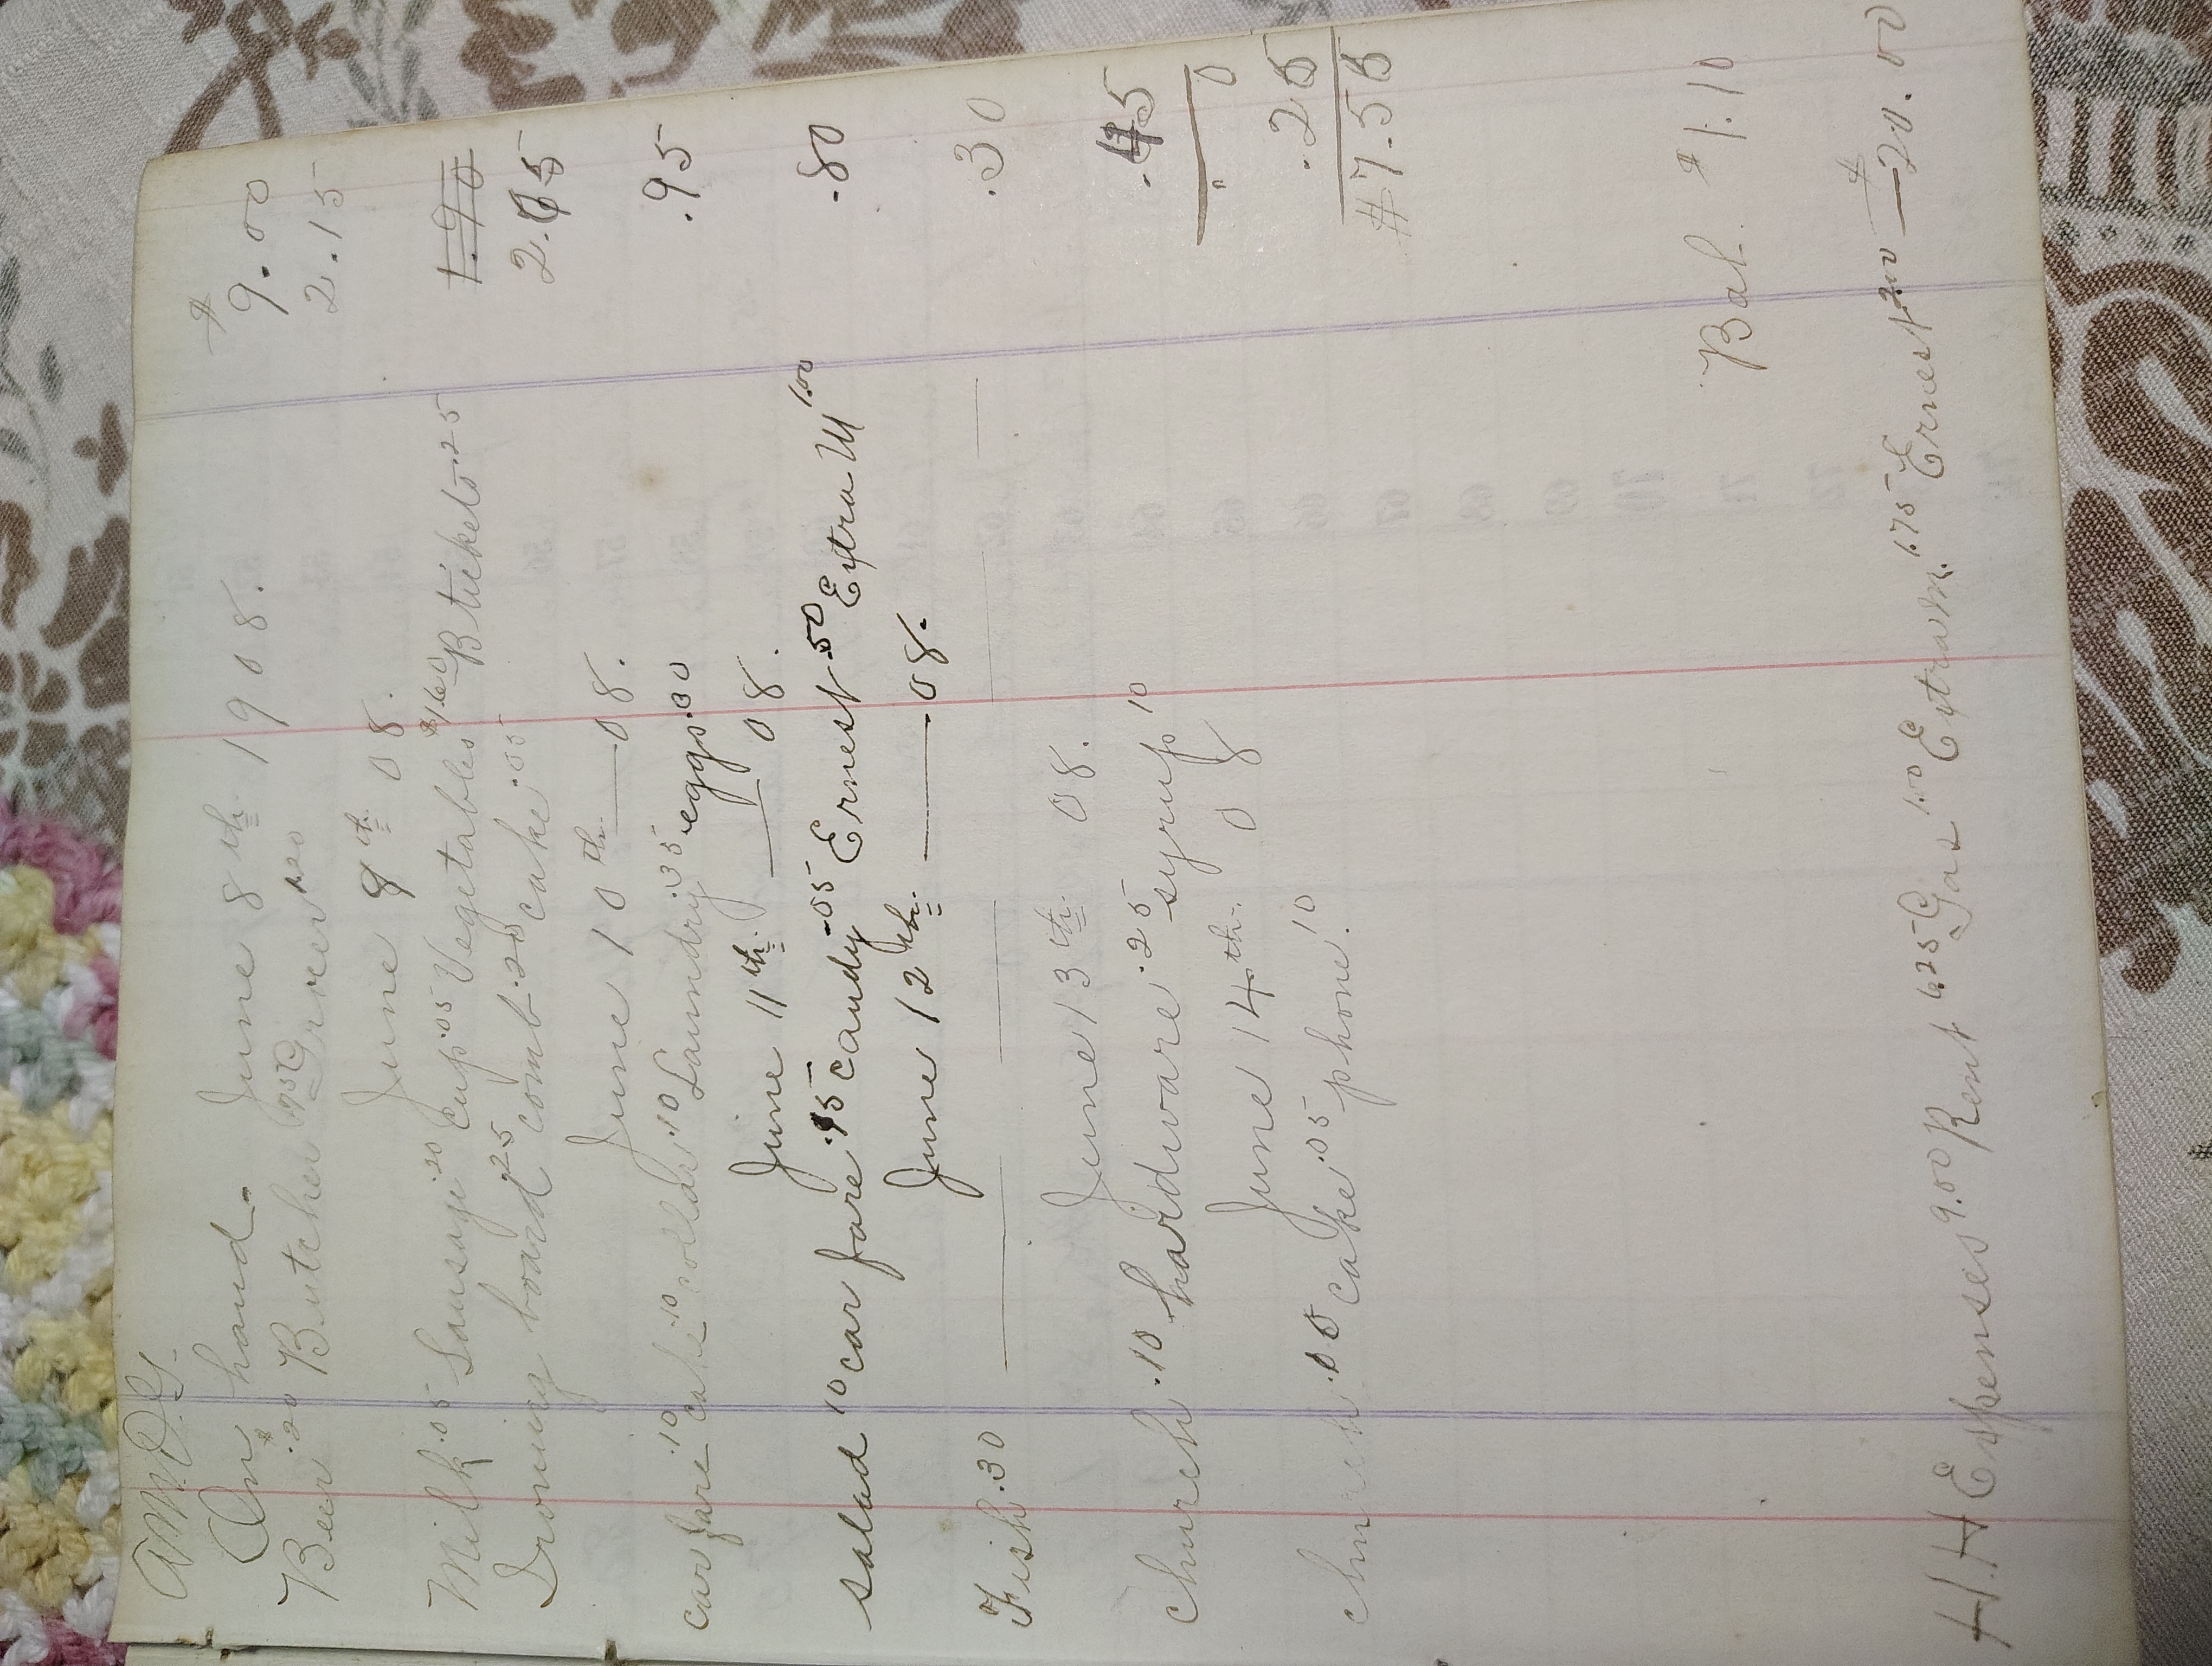 A.M.D.G.
On hand. June 8th 1908. $9.00
Beer .20 Butcher .75 Grocer 1.20 2.15
June 9th 08.
Milk .05 Sausage .20 Cup .05 Vegetables B tickets .25 1.90
Ironing board .25 comb .20 cake .05 2.05
June 10th — 08.
car fare .10 cake .10 collars .10 Laundry .35 eggs .30 .95
June 11th — 08.
salad .10 car fare .15 candy .05 Ernest .50 Extra M 1.00 .80
June 12th. — 08.
Fish .30 .30
June 13th 08.
church .10 hardware .25 syrup 10 .45
June 14th. 08
church cake .05 phone .10 .25
$7.55
Bal. $1.10
H.H Expenses 9.00 Rent 6.25 Gas 1.00 Extra M. 1.75 Ernest 2.00 — $20.00